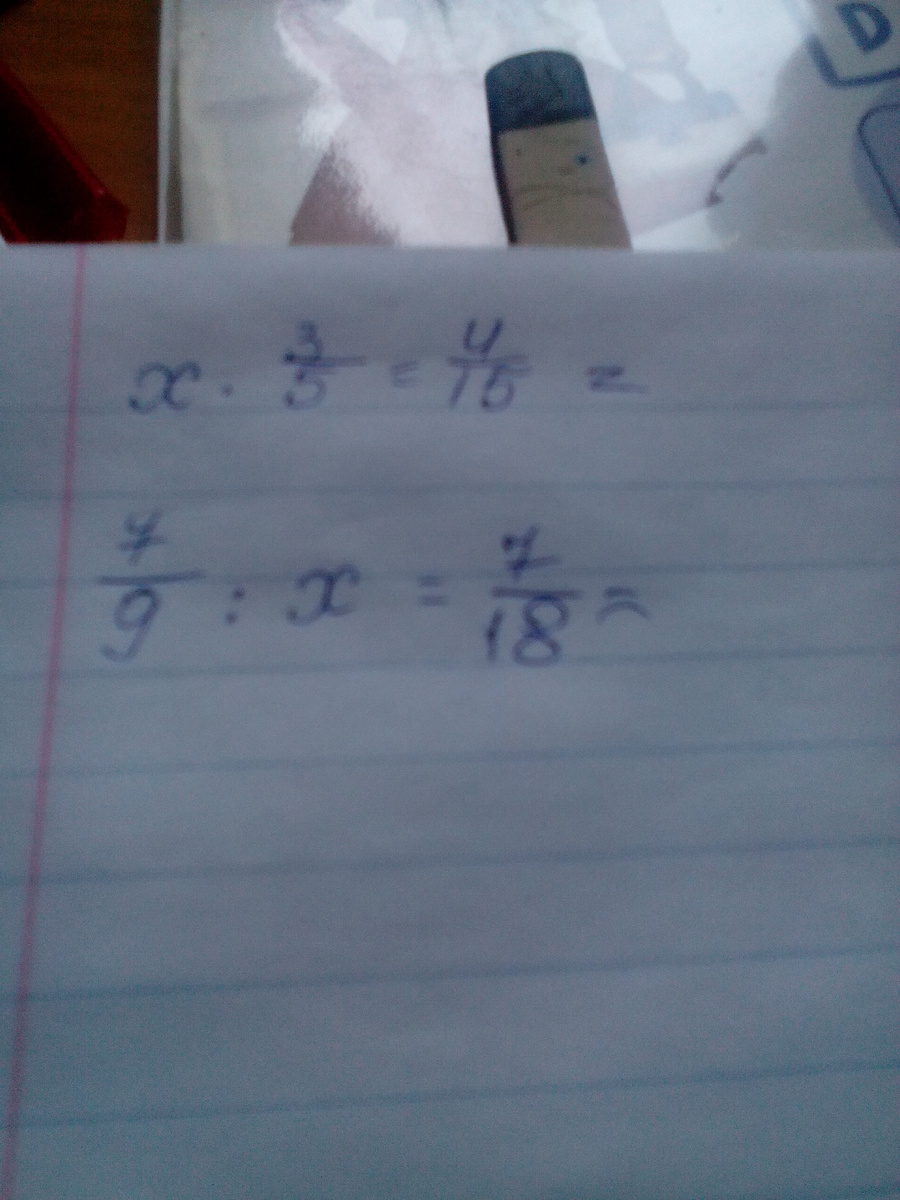 D
x · 3/5 = 4/15 =
7/9 : x = 7/18 =